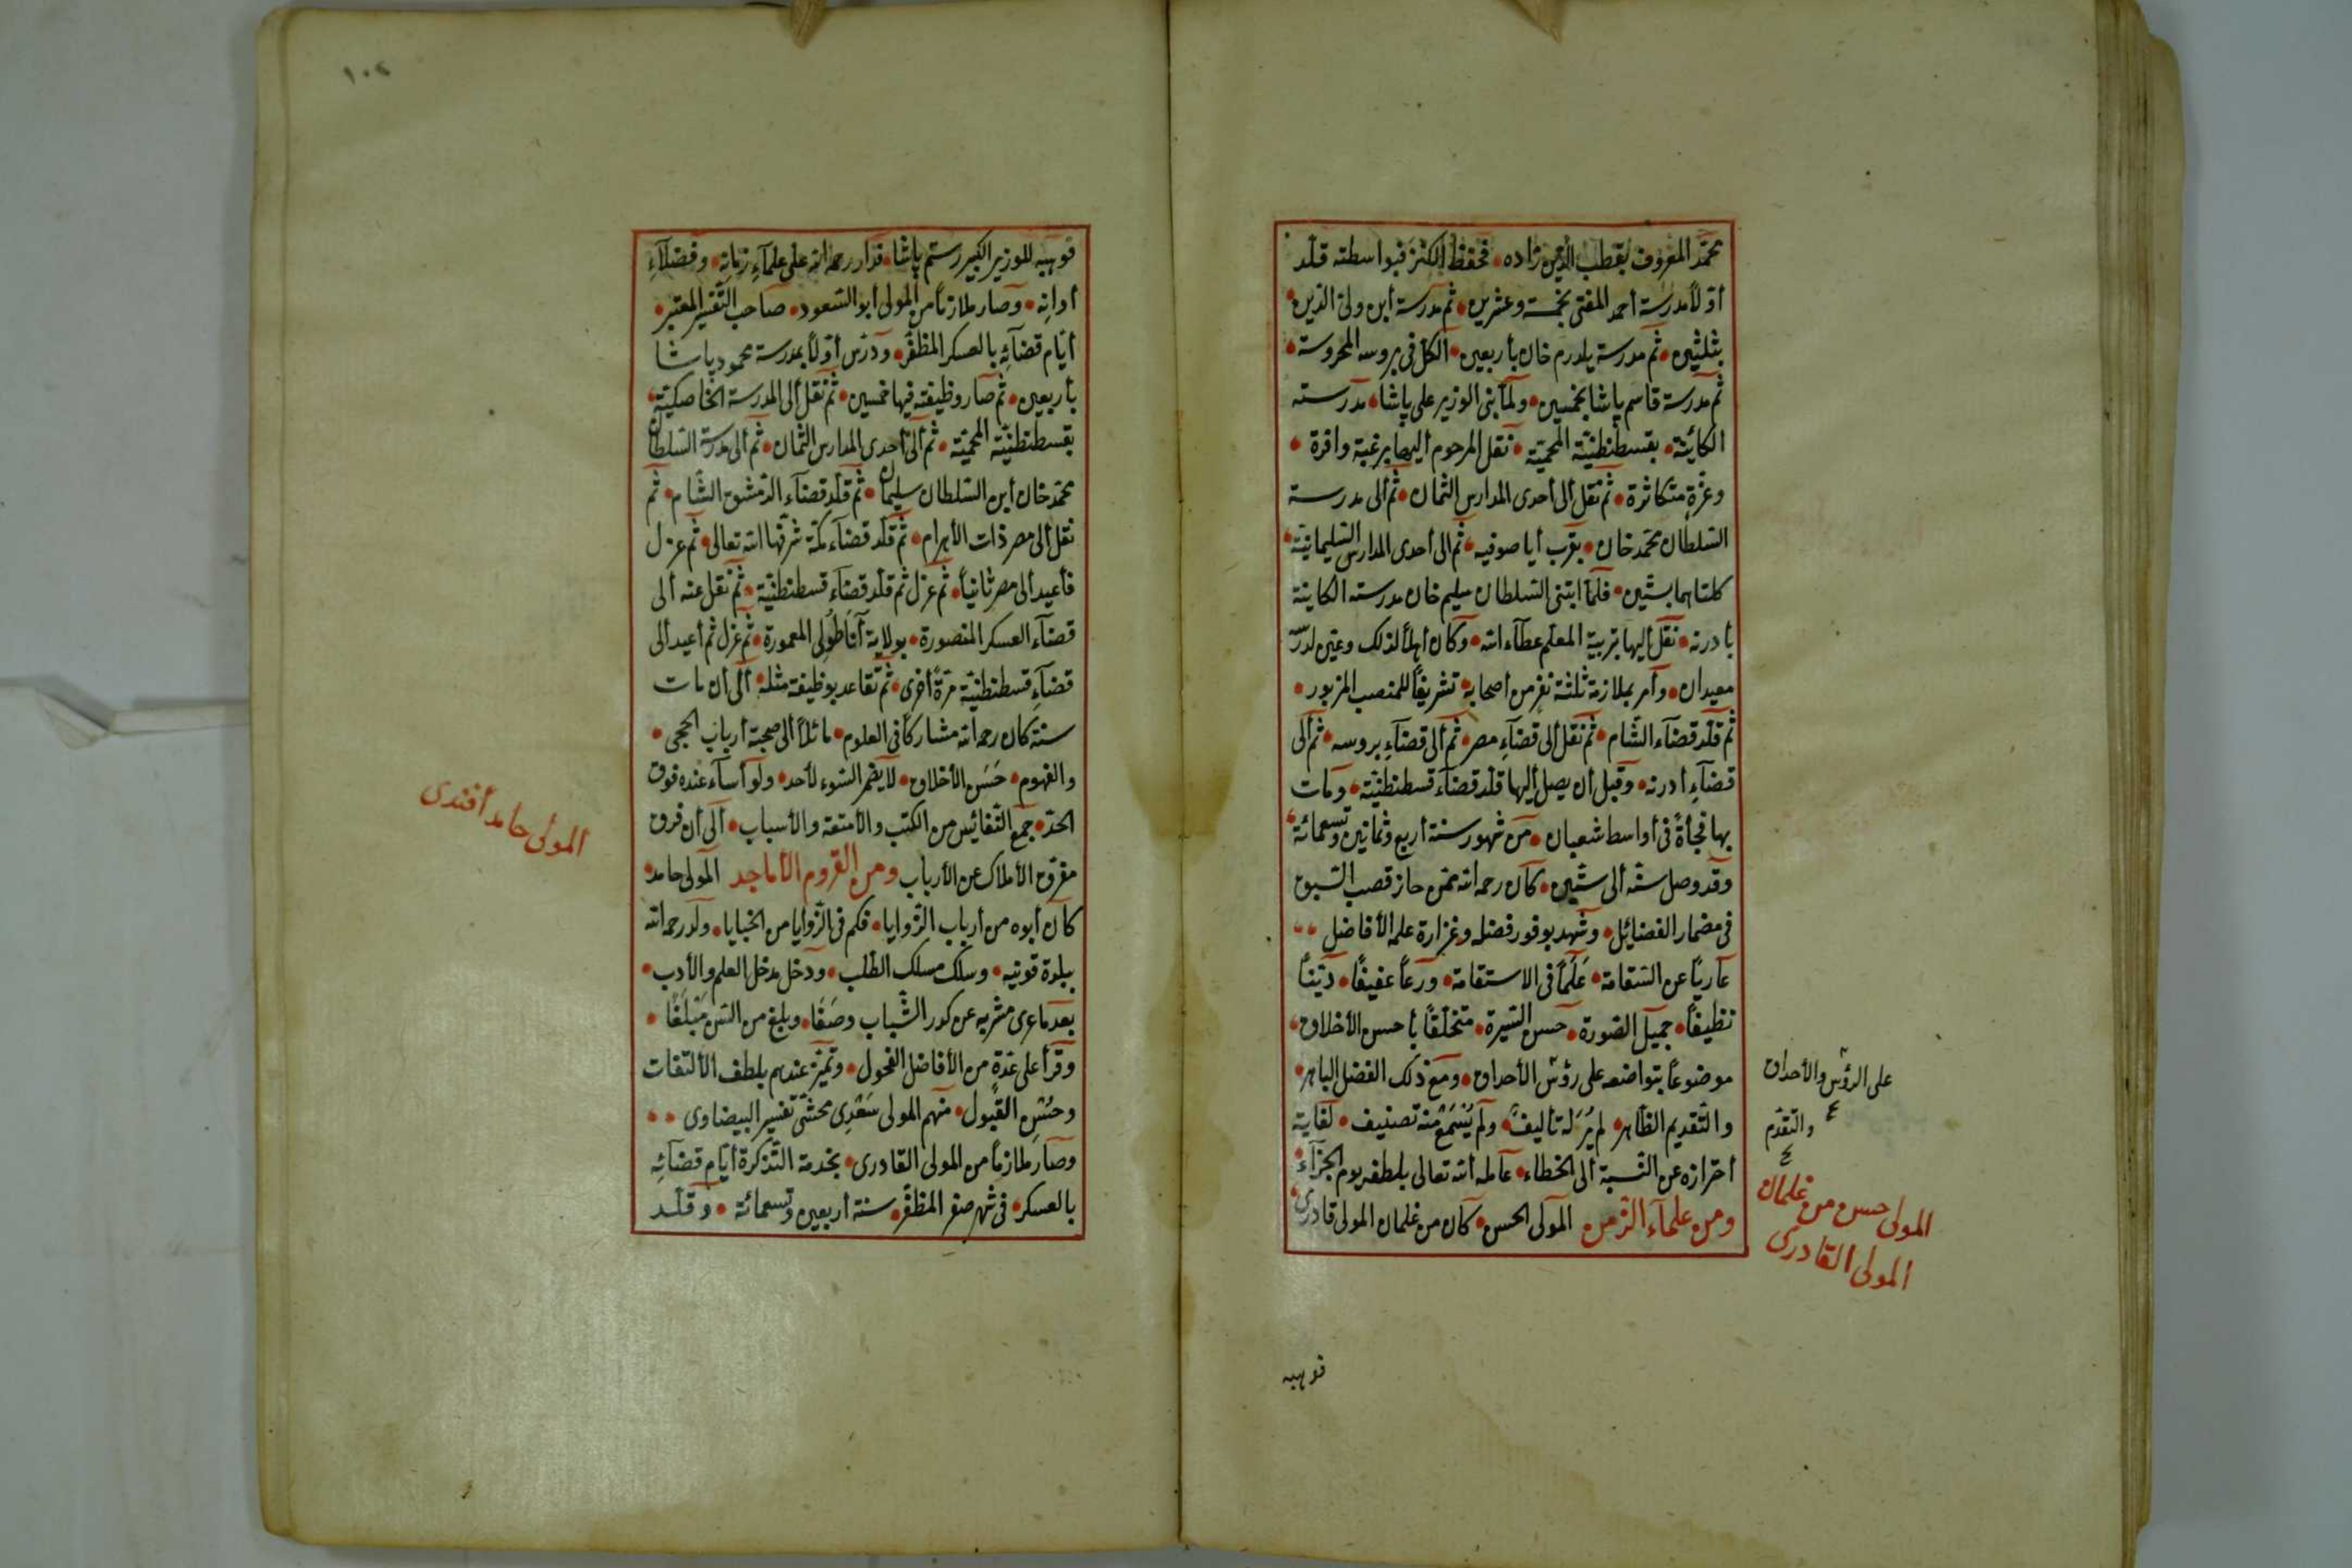 محمّد المعروف بقطب الدين زاده فحفظ الكنز فبواسطته قلّد
أوّلاً مدرسة أحمد المفتى بخمسة وعشرين ثم مدرسة أبن ولىّ الدّين
بثلثين ثمّ مدرسة يلدرم خان بأربعين الكلّ فى بروسه المحروسة
ثم مدرسة قاسم پاشا بخمسين ولمّا بنى الوزير على پاشا مدرسته
الكائنة بقسطنطنيّة المحميّة نقل المرحوم أليها برغبة وافرة
وعزّة متكاثرة ثم نقل ألى أحدى المدارس الثمان ثم ألى مدرسة
السّلطان محمّد خان بقرب أيا صوفيه ثم الى أحدى المدارس السّليمانيّة
كلتاهما بستّين فلمّا ابتنى السّلطان سليم خان مدرسته الكاينة
بأدرنه نقل أليها بتربية المعلّم عطآء الله وكان أهلاً لذلك وعيّن لدرسه
معيدان وأمر بملازمة ثلثة نفر من أصحابه تشريفاً للمنصب المزبور
ثم قلّد قضآء الشّام ثم نقل ألى قضآءِ مصر ثم ألى قضآءِ بروسه ثم ألى
قضآءِ أدرنه وقبل أن يصل أليها قلّد قضآء قسطنطنيّة ومات
بها فجأةً فى أواسط شعبان من شهور سنة أربع وثمانين وتسعمائة
وقد وصل سنّه ألى ستّين كان رحمه الله ممّن حاز قصب السّبق
فى مضمار الفضائل وشهد بوفور فضله وغزارة علمه الأفاضل
عارياً عن السّقامة عَلَماً فى الاستقامة ورعاً عفيفاً ديّناً
نظيفاً جميل الصّورة حسن السّيرة متخلّقاً بأحسن الأخلاق
موضوعاً بتواضعه على رؤس الأحداق ومع ذلك الفضل الباهر
والتّقديم الظّاهر لم يُرَ له تأليف ولم يُسْمَعْ منه تصنيف لغاية
أحترازه عن النّسبة ألى الخطاء عامله الله تعالى بلطفه يوم الجزآء
ومن علمآء الزّمن المولى الحسن كان من غلمان المولى قادرى
على الرؤس والأحداق
والتقدّم
المولى حسن من غلمان
المولى القادرى
فوهبه
١٠٢
فوهبه للوزير الكبير رستم پاشا فدار رحمه الله على علمآءِ زمانه وفضلآءِ
أوانه وصار ملازماً من المولى أبو السّعود صاحب التّفسير المعتبر
أيّام قضآئه بالعسكر المظفّر ودرّس أوّلاً بمدرسة محمود پاشا
بأربعين ثم صار وظيفته فيها خمسين ثم نقل ألى المدرسة الخاصكيّة
بقسطنطنيّة المحميّة ثم ألى أحدى المدارس الثمان ثم ألى مدرسة السّلطان
محمّد خان أبن السّلطان سليمان ثم قلّد قضآء الدّمشق الشّام ثم
نقل ألى مصر ذات الأهرام ثم قلّد قضآء مكّة شرّفها الله تعالى ثم عزل
فأعيد ألى مصر ثانياً ثم عزل ثم قلّد قضآء قسطنطنيّة ثم نقل عنه ألى
قضآء العسكر المنصورة بولاية أناطولى المعمورة ثم عزل ثم أعيد ألى
قضآءِ قسطنطنيّة مرّة أخرى ثم تقاعد بوظيفة مثله ألى أن مات
سنة كان رحمه الله مشاركاً فى العلوم مائلاً ألى صحبة أرباب الحجى
والفهوم حَسَن الأخلاق لا يضمر السّوء لأحد ولو أسآء عنده فوق
الحدّ جمع النّفائس من الكتب والأمتعة والأسباب ألى أن فرق
مفرق الأملاك عن الأرباب ومن القروم الأماجد المولى حامد
كان أبوه من أرباب الزّوايا فكم فى الزّوايا من الخبايا ولد رحمه الله
ببلدة قونيه وسلك مسلك الطّلب ودخل مدخل العلم والأدب
بعد ما عرى مشربه عن كدر الشّباب وصَفَا وبلغ من السّن مَبْلَغًا
وقرأ على عدّة من الأفاضل الفحول وتميّز عندهم بلطف الألتفات
وحُسْن القبول منهم المولى سَعْدِى محشّى تفسير البيضاوى
وصار ملازماً من المولى القادرى بخدمة التّذكرة أيّام قضائه
بالعسكر فى شهر صفر المظفّر سنة أربعين وتسعمائة وقلّد
المولى حامد أفندى